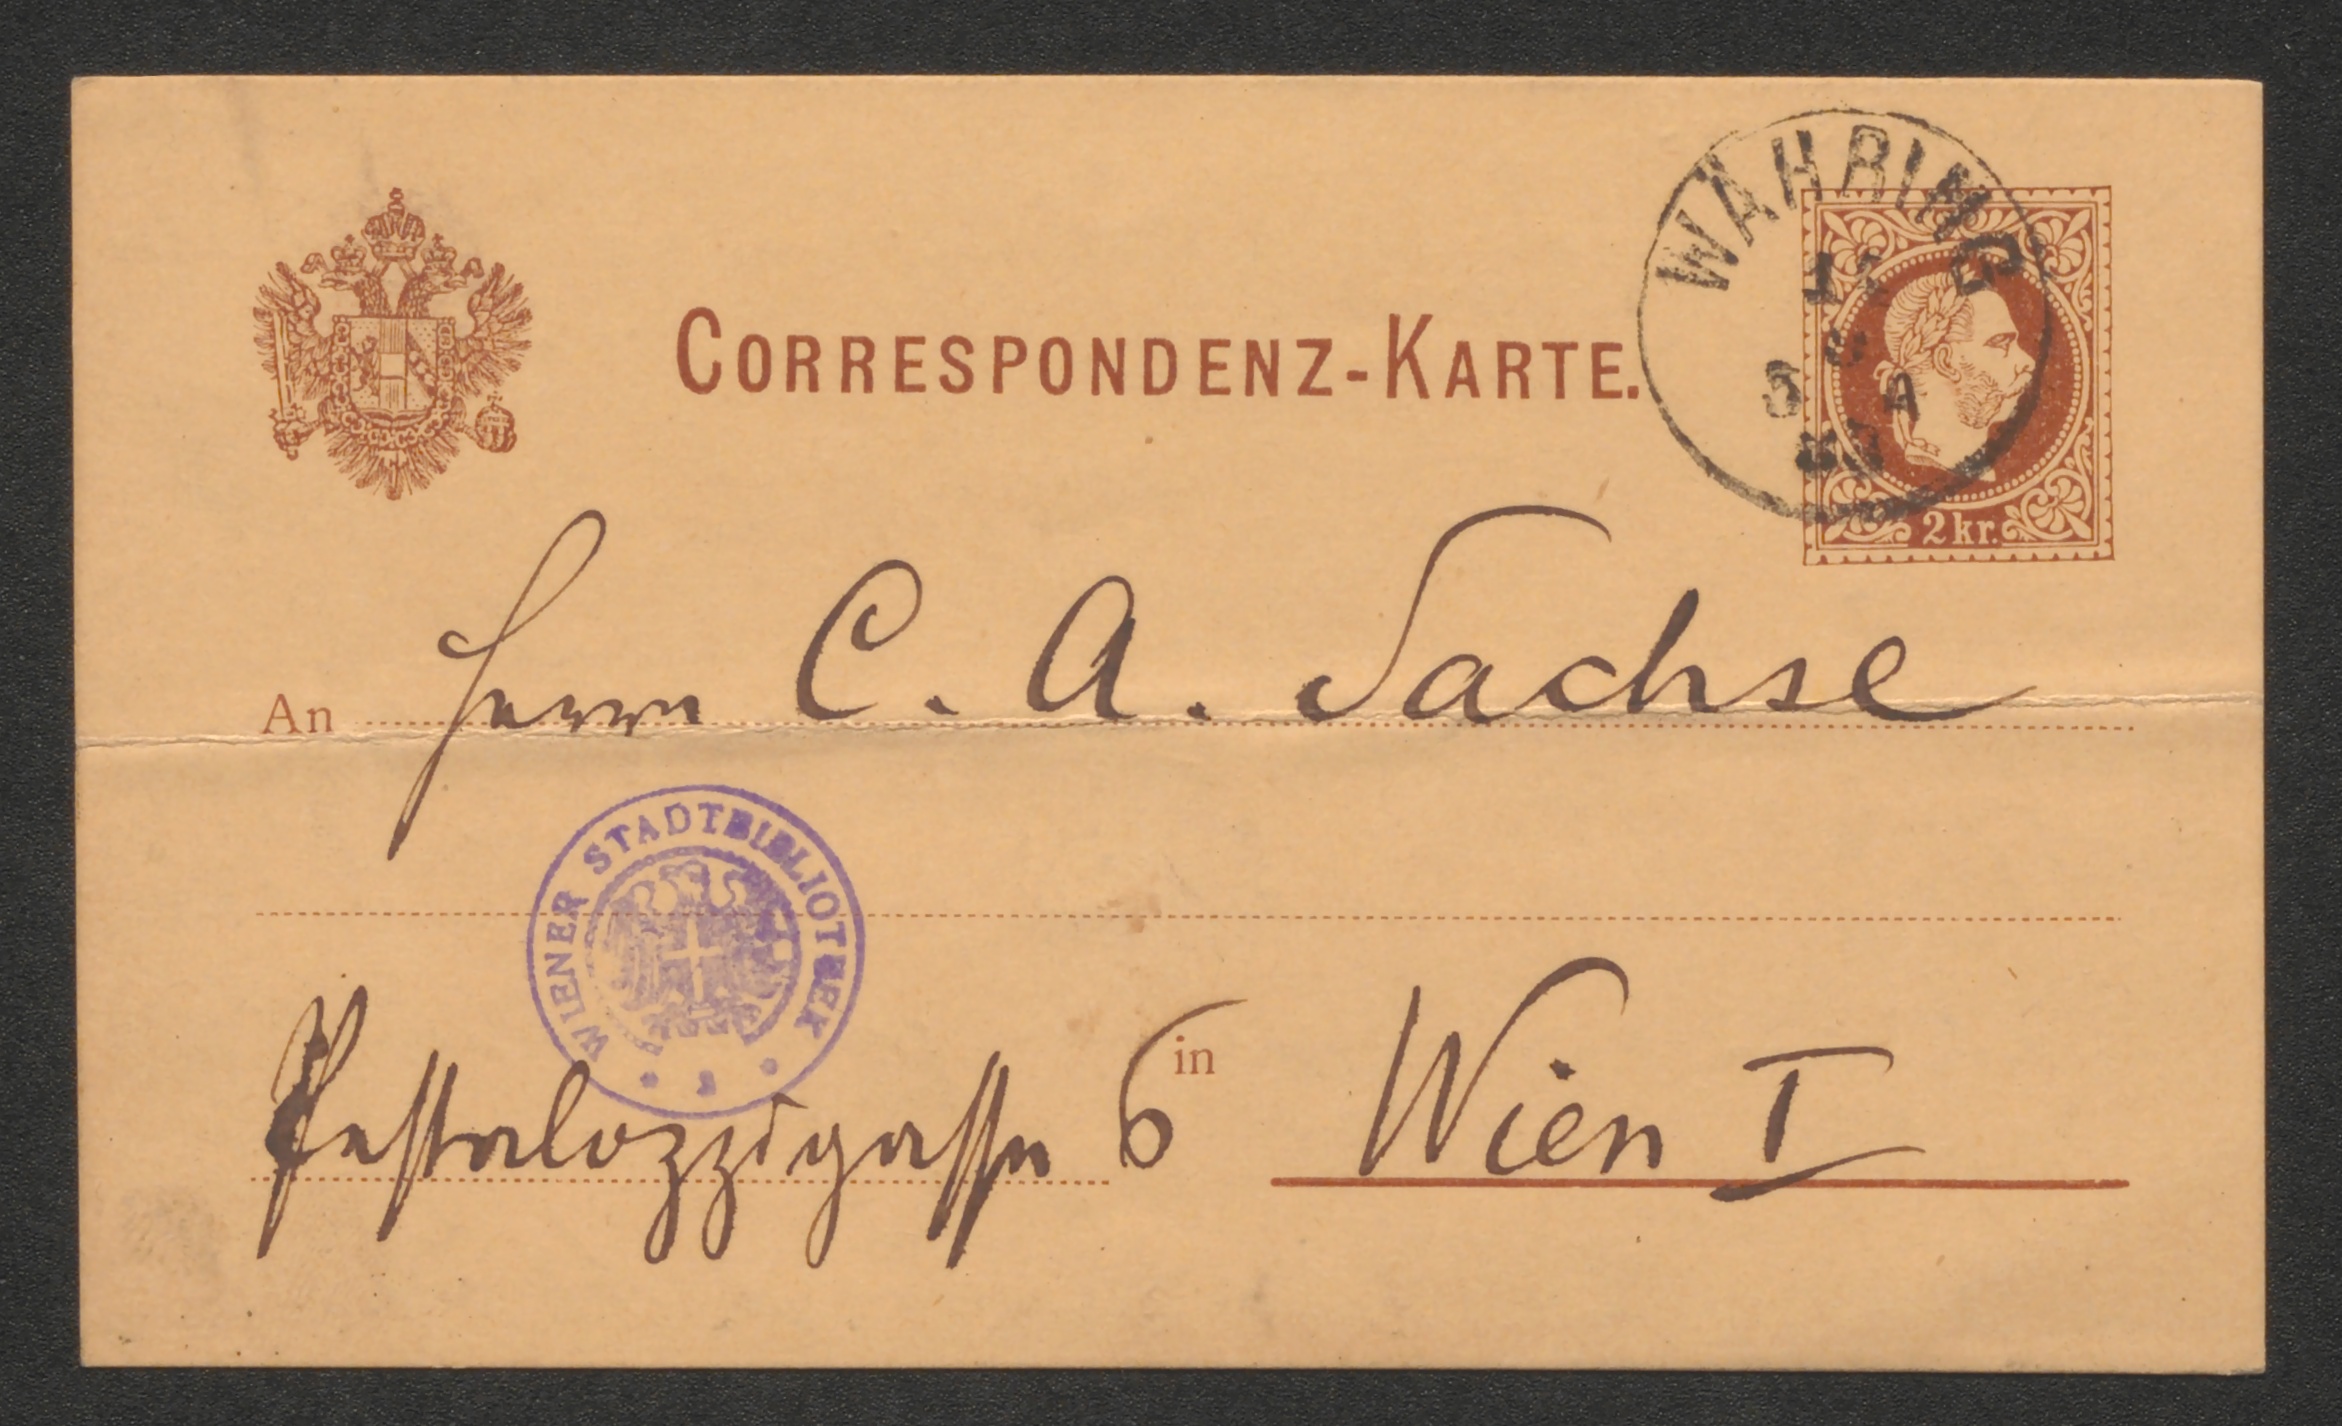 WÄHRING
CORRESPONDENZ-KARTE.
2 kr.
An Herrn C. A. Sachse
WIENER STADTBIBLIOTHEK
Pestalozzigasse 6 in Wien I